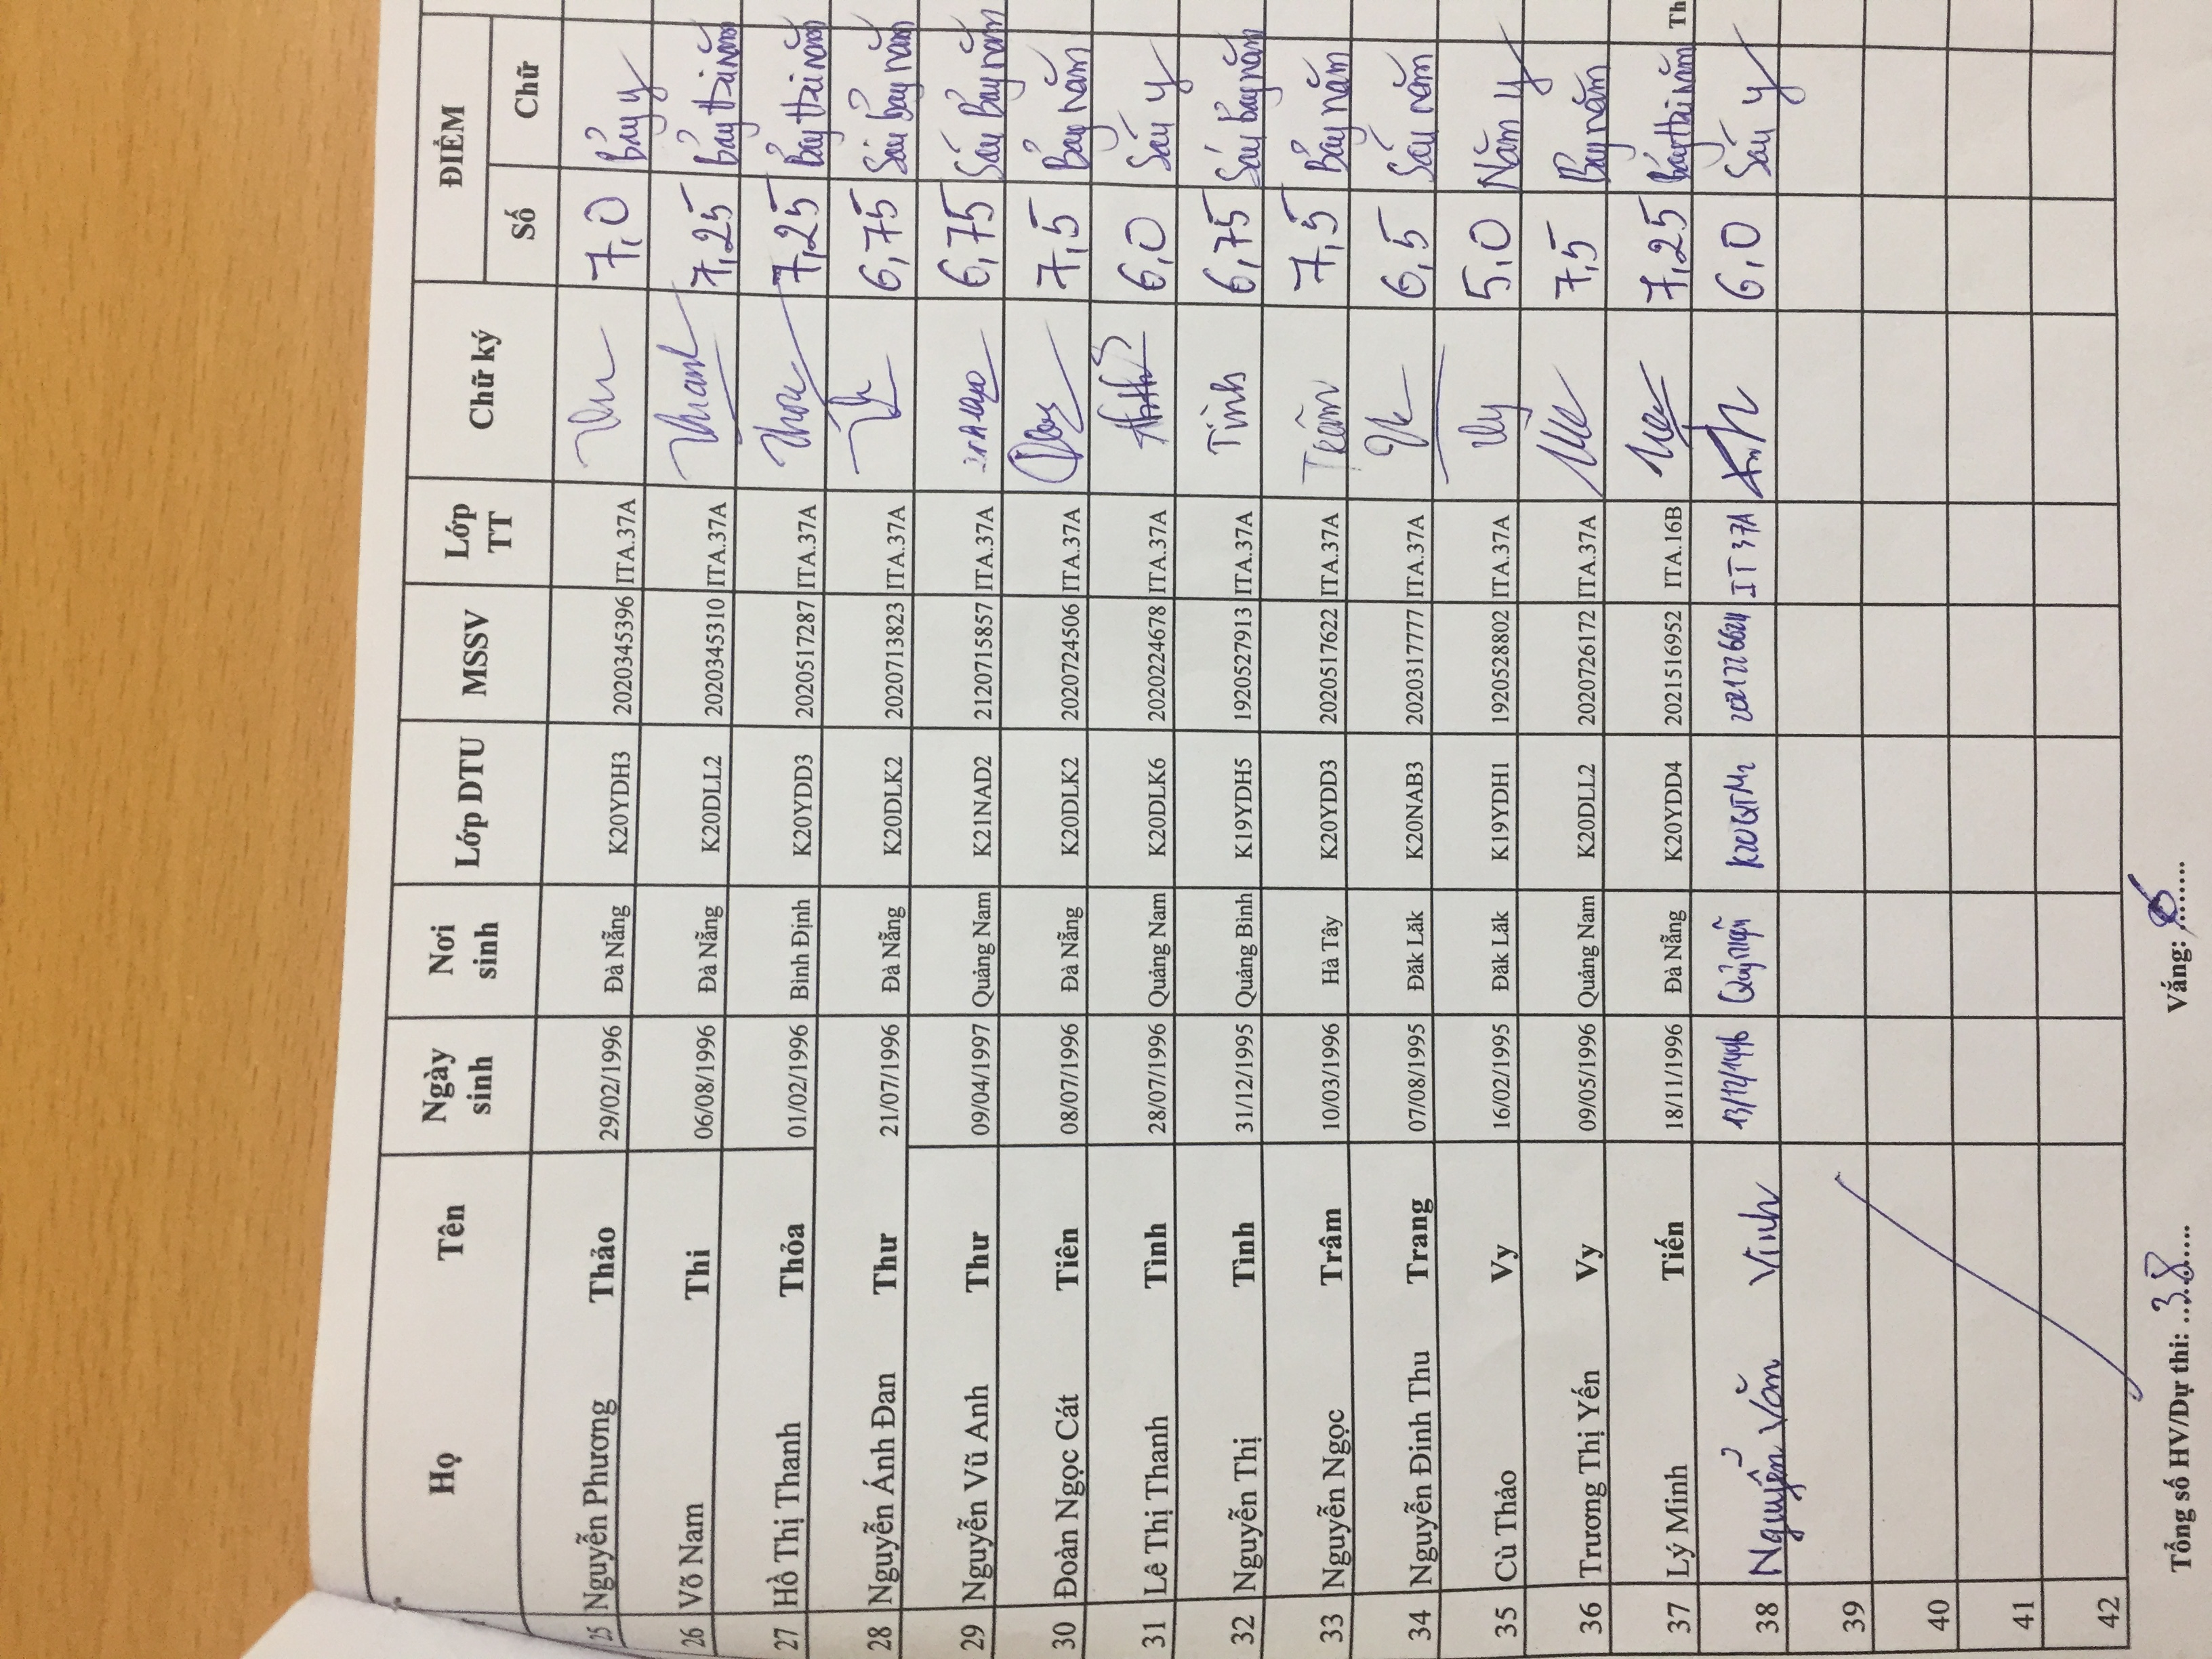 Họ Tên Ngày sinh Nơi sinh Lớp DTU MSSV Lớp TT Chữ ký ĐIỂM Số Chữ
25 Nguyễn Phương Thảo 29/02/1996 Đà Nẵng K20YDH3 2020345396 ITA.37A 7,0 Bảy y
26 Võ Nam Thi 06/08/1996 Đà Nẵng K20DLL2 2020345310 ITA.37A 7,25 Bảy hai năm
27 Hồ Thị Thanh Thỏa 01/02/1996 Bình Định K20YDD3 2020517287 ITA.37A 7,25 Bảy hai năm
28 Nguyễn Ánh Đan Thư 21/07/1996 Đà Nẵng K20DLK2 2020713823 ITA.37A 6,75 Sáu bảy năm
29 Nguyễn Vũ Anh Thư 09/04/1997 Quảng Nam K21NAD2 2120715857 ITA.37A 6,75 Sáu Bảy năm
30 Đoàn Ngọc Cát Tiên 08/07/1996 Đà Nẵng K20DLK2 2020724506 ITA.37A 7,5 Bảy năm
31 Lê Thị Thanh Tình 28/07/1996 Quảng Nam K20DLK6 2020224678 ITA.37A 6,0 Sáu y
32 Nguyễn Thị Tình 31/12/1995 Quảng Bình K19YDH5 1920527913 ITA.37A Tình 6,75 Sáu bảy năm
33 Nguyễn Ngọc Trâm 10/03/1996 Hà Tây K20YDD3 2020517622 ITA.37A Trâm 7,5 Bảy năm
34 Nguyễn Đinh Thu Trang 07/08/1995 Đăk Lăk K20NAB3 2020317777 ITA.37A 6,5 Sáu năm
35 Cù Thảo Vy 16/02/1995 Đăk Lăk K19YDH1 1920528802 ITA.37A Vy 5,0 Năm y
36 Trương Thị Yến Vy 09/05/1996 Quảng Nam K20DLL2 2020726172 ITA.37A 7,5 Bảy năm
37 Lý Minh Tiến 18/11/1996 Đà Nẵng K20YDD4 2021516952 ITA.16B 7,25 Bảy hai năm Th
38 Nguyễn Văn Vinh 13/12/1996 K20QTM2 IT 37A 6,0 Sáu y
39
40
41
42
Tổng số HV/Dự thi: ...38... Vắng: ........